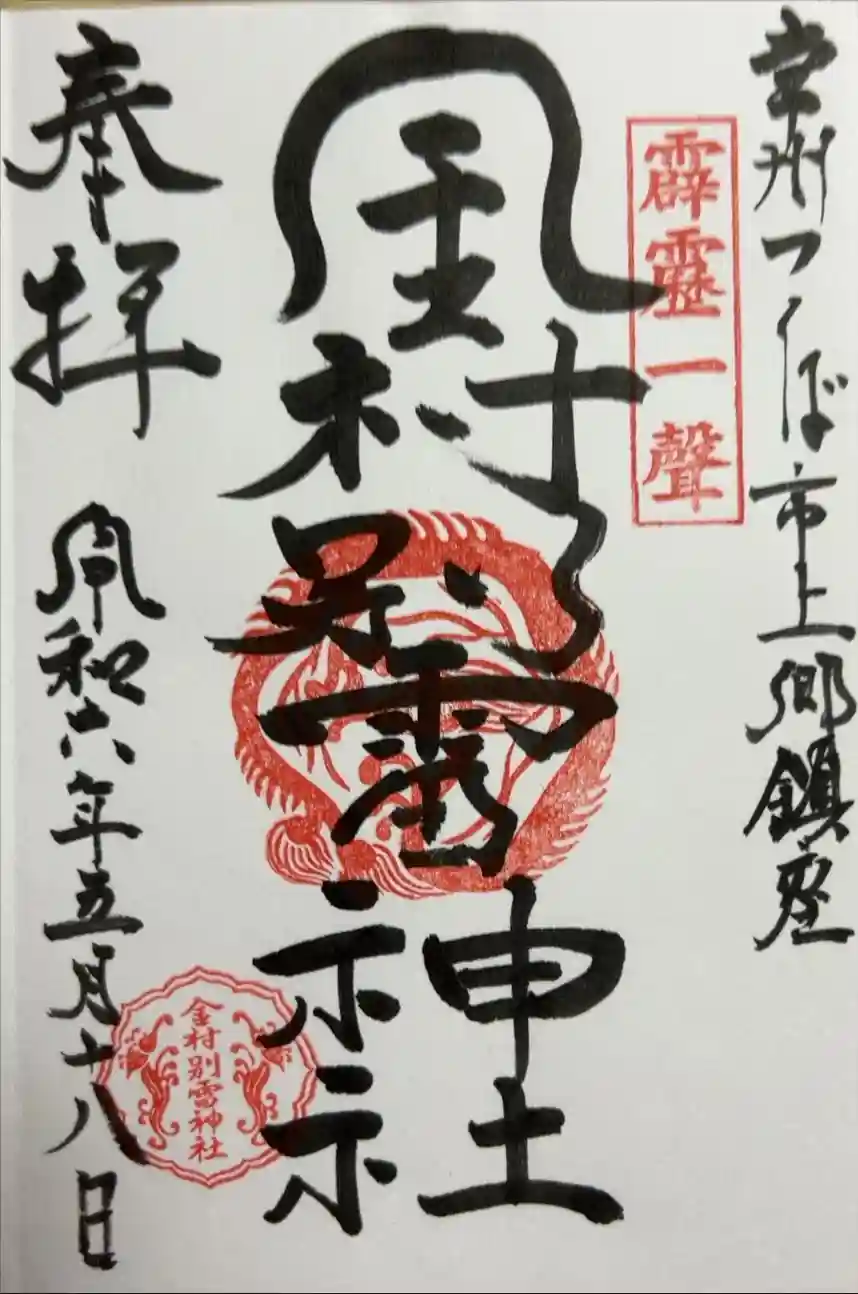 常州つくば市上郷鎮座
霹靂一聲
金村別雷神社
金村別雷神社
奉拝
令和六年五月十八日